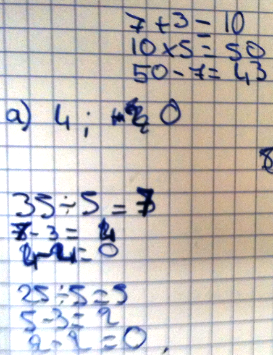 7 + 3 = 10
10 × 5 = 50
50 - 7 = 43
a) 4 ; 0
8
35 ÷ 5 = 7
7 - 3 = 4
4 - 4 = 0
25 ÷ 5 = 5
5 - 3 = 2
2 - 2 = 0